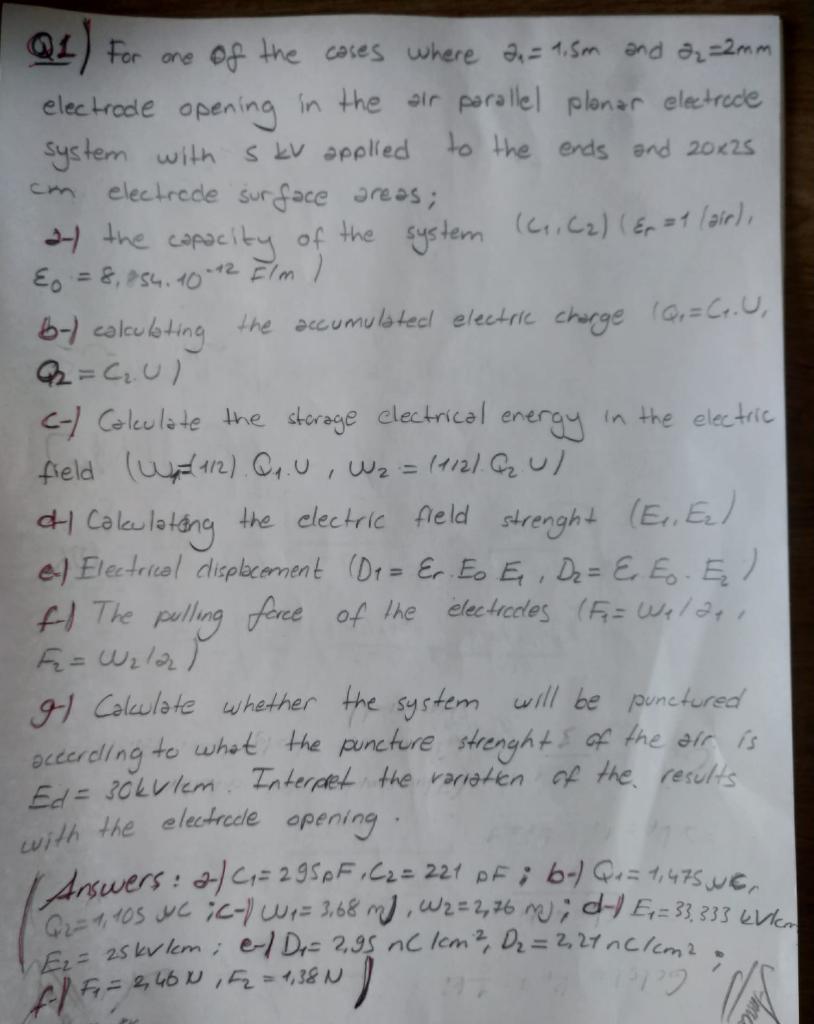 Q1) For one of the cases where a₁ = 1.5m and a₂ = 2mm
electrode opening in the air parallel planar electrode
system with 5 kV applied to the ends and 20x25
cm electrode surface areas;
a-) the capacity of the system (C₁, C₂) (εr = 1 (air),
ε₀ = 8,854.10⁻¹² F/m )
b-) calculating the accumulated electric charge (Q₁ = C₁.U,
Q₂ = C₂.U)
c-) Calculate the storage electrical energy in the electric
field (W₁=(1/2).Q₁.U , W₂ = (1/2).Q₂.U)
d-) Calculating the electric field strenght (E₁, E₂)
e-) Electrical displacement (D₁ = Er.E₀ E₁ , D₂ = Er E₀. E₂ )
f-) The pulling force of the electrodes (F₁ = W₁/a₁ ,
F₂ = W₂/a₂ )
g-) Calculate whether the system will be punctured
according to what the puncture strenght of the air is
Ed = 30kV/cm. Interpret the variation of the results
with the electrode opening.
(Answers: a-) C₁ = 295pF, C₂ = 221 pF ; b-) Q₁ = 1,475 μC,
Q₂ = 1,105 μC ; c-) W₁ = 3,68 mJ, W₂ = 2,76 mJ ; d-) E₁ = 33,333 kV/cm
E₂ = 25kV/cm ; e-) D₁ = 2,95 nC/cm², D₂ = 2,21 nC/cm² ;
f-) F₁ = 2,46 N , F₂ = 1,38 N )